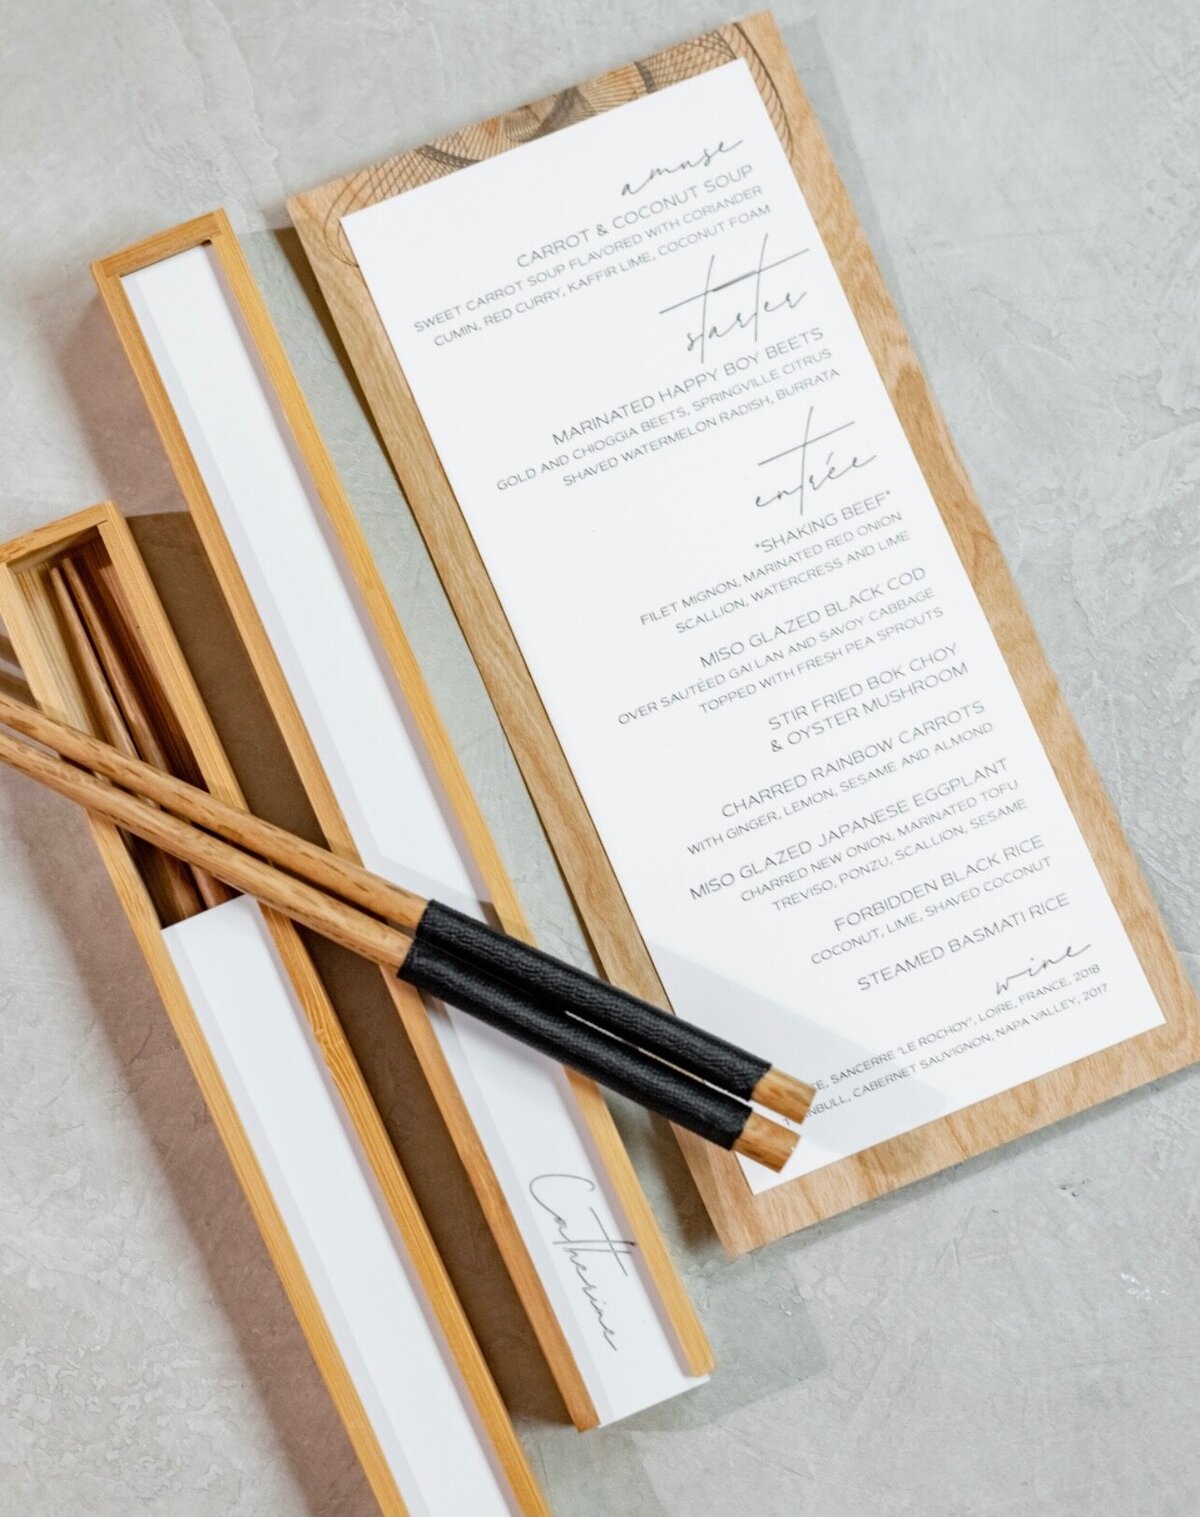 amuse
CARROT & COCONUT SOUP
SWEET CARROT SOUP FLAVORED WITH CORIANDER
CUMIN, RED CURRY, KAFFIR LIME, COCONUT FOAM
starter
MARINATED HAPPY BOY BEETS
GOLD AND CHIOGGIA BEETS, SPRINGVILLE CITRUS
SHAVED WATERMELON RADISH, BURRATA
entrée
"SHAKING BEEF"
FILET MIGNON, MARINATED RED ONION
SCALLION, WATERCRESS AND LIME
MISO GLAZED BLACK COD
OVER SAUTÉED GAI LAN AND SAVOY CABBAGE
TOPPED WITH FRESH PEA SPROUTS
STIR FRIED BOK CHOY
& OYSTER MUSHROOM
CHARRED RAINBOW CARROTS
WITH GINGER, LEMON, SESAME AND ALMOND
MISO GLAZED JAPANESE EGGPLANT
CHARRED NEW ONION, MARINATED TOFU
TREVISO, PONZU, SCALLION, SESAME
FORBIDDEN BLACK RICE
COCONUT, LIME, SHAVED COCONUT
STEAMED BASMATI RICE
wine
SANCERRE "LE ROCHOY", LOIRE, FRANCE, 2018
CABERNET SAUVIGNON, NAPA VALLEY, 2017
Catherine